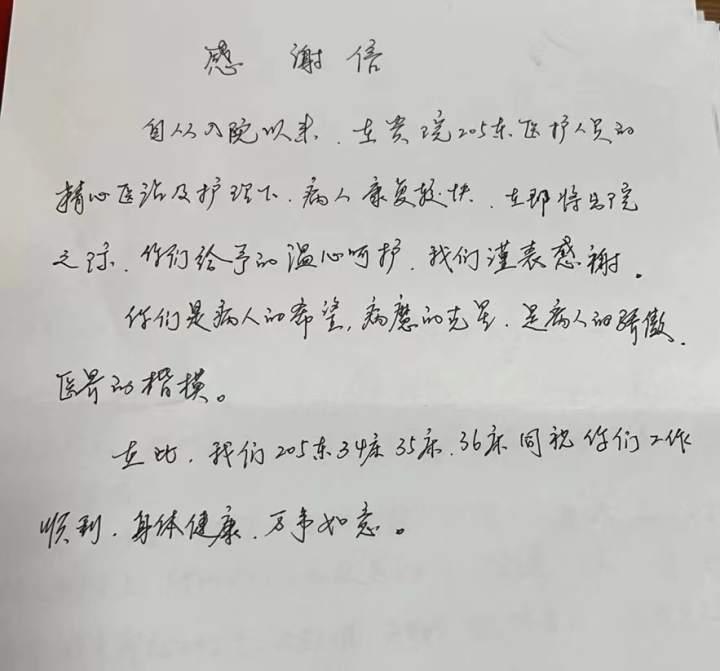 感谢信
自从入院以来，在贵院205东医护人员的
精心医治及护理下，病人康复较快，在即将出院
之际，你们给予的温心呵护，我们谨表感谢。
你们是病人的希望，病魔的克星，是病人的骄傲，
医界的楷模。
在此，我们205东34床35床、36床同祝你们工作
顺利，身体健康，万事如意。